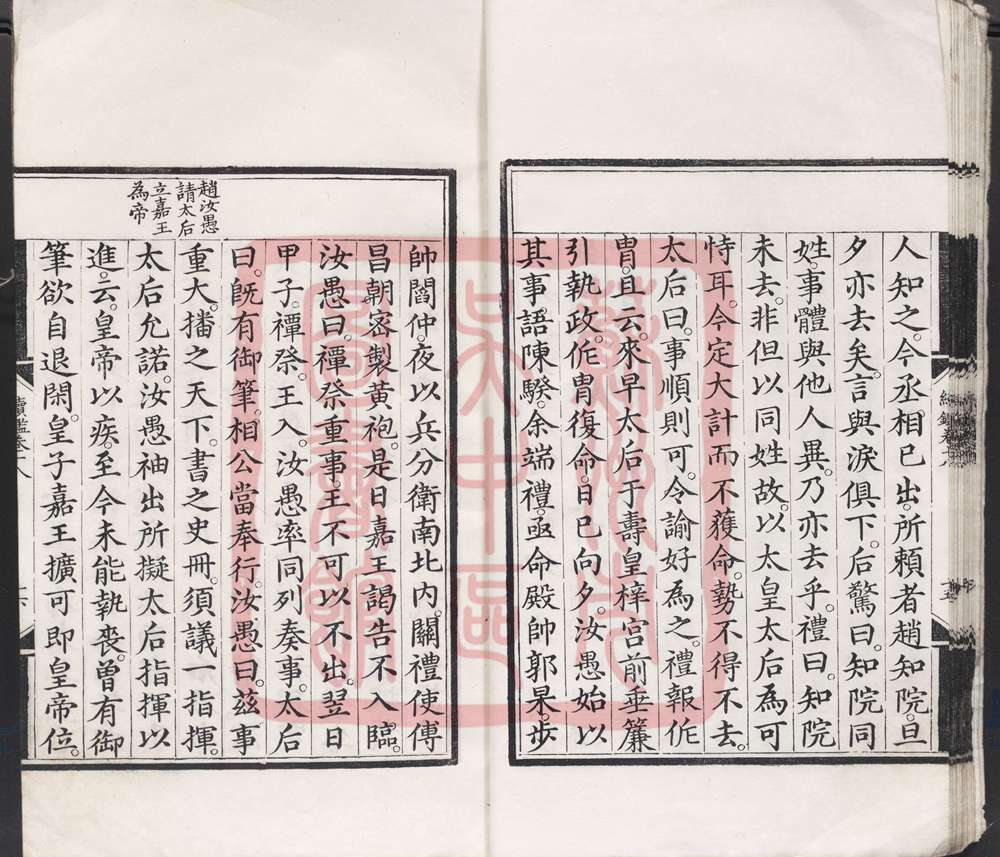 人知之。今丞相已出。所賴者趙知院。旦
夕亦去矣。言與淚俱下。后驚曰。知院同
姓。事體與他人異。乃亦去乎。禮曰。知院
未去。非但以同姓故。以太皇太后為可
恃耳。今定大計而不獲命。勢不得不去。
太后曰。事順則可。令諭好為之。禮報侂
冑。且云。來早太后于壽皇梓宮前垂簾
引執政。侂冑復命。日已向夕。汝愚始以
其事語陳騤。余端禮。亟命殿帥郭杲。步
帥閻仲。夜以兵分衛南北內。關禮使傅
昌朝密製黃袍。是日嘉王謁告不入臨。
汝愚曰。禫祭重事。王不可以不出。翌日
甲子。禫祭。王入。汝愚率同列奏事。太后
曰。旣有御筆。相公當奉行。汝愚曰。茲事
重大。播之天下。書之史冊。須議一指揮。
太后允諾。汝愚袖出所擬太后指揮以
進。云。皇帝以疾。至今未能執喪。曾有御
筆欲自退閑。皇子嘉王擴可即皇帝位。
趙汝愚
請太后
立嘉王
為帝
續鑑卷八